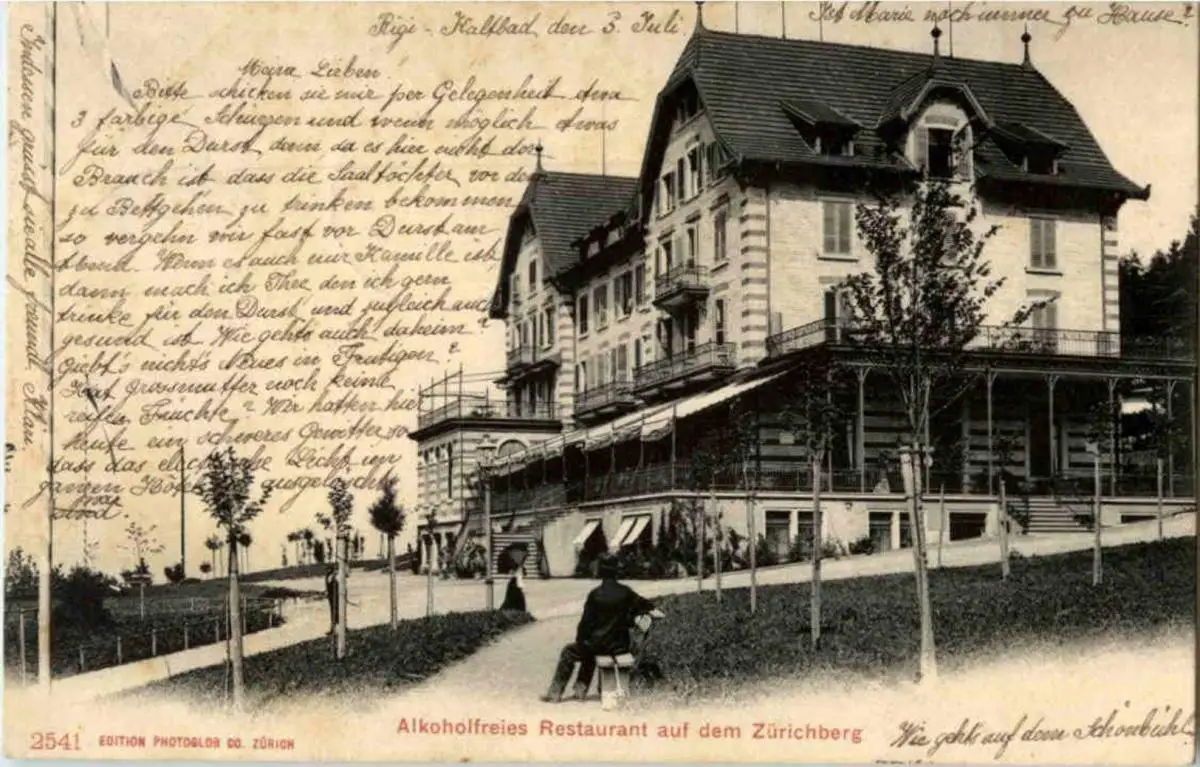 Rigi-Kaltbad den 3. Juli
Ist Marie noch immer zu Hause?
Meine Lieben
Bitte schicken sie mir per Gelegenheit etwa
3 farbige Schurzen und wenn möglich etwas
für den Durst, denn da es hier nicht der
Brauch ist dass die Saaltöchter vor dem
zu Bettgehen zu trinken bekommen
so vergehn wir fast vor Durst am
Abend. Wenn es auch nur Kamille ist,
dann mach ich Thee den ich gern
trinke für den Durst und zugleich auch
gesund ist. Wie gehts auch daheim?
Giebt's nichts Neues in Frutigen?
Hat Grossmutter noch keine
reifen Früchte? Wir hatten hier
heute ein schweres Gewitter so
dass das elektrische Licht im
ganzen Hotel ausgelöscht
Indessen grüsst sie alle freundl.
Wie gehts auf dem Schönbühl
Alkoholfreies Restaurant auf dem Zürichberg
2541 EDITION PHOTOGLOB CO. ZÜRICH